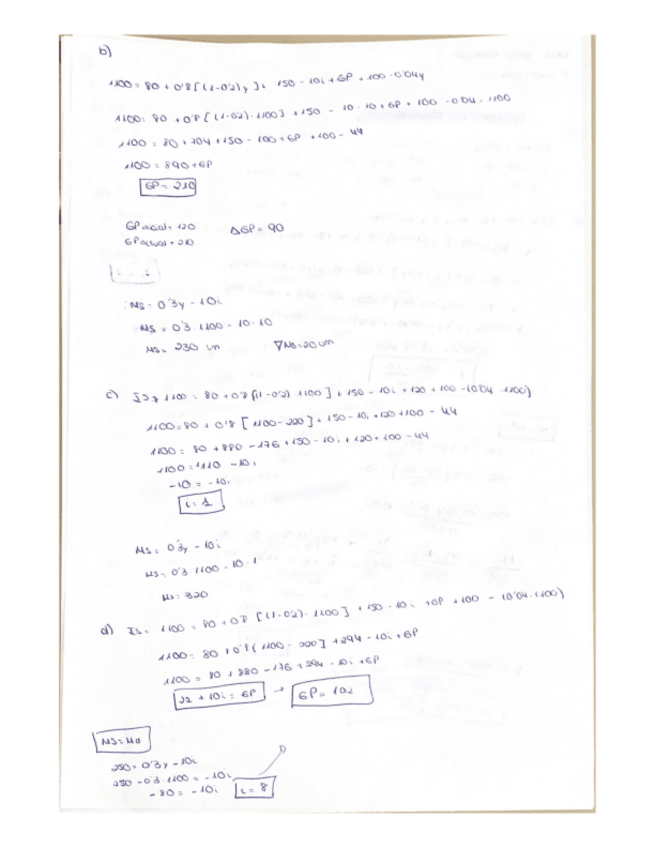 b)
1100 = 80 + 0'8 [(1-0'2) y] + 150 - 10i + GP + 100 - 0'04y
1100 = 80 + 0'8 [(1-0'2) · 1100] + 150 - 10 · 10 + GP + 100 - 0'04 · 1100
1100 = 80 + 704 + 150 - 100 + GP + 100 - 44
1100 = 890 + GP
GP = 210
GP inicial = 120 ΔGP = 90
GP actual = 210
Ms = 0'3y - 10i
Ms = 0'3 · 1100 - 10 · 10
Ms = 230 um ∇Ms = 20 um
c) IS → 1100 = 80 + 0'8 [(1-0'2) 1100] + 150 - 10i + 120 + 100 - (0'04 · 1100)
1100 = 80 + 0'8 [1100 - 220] + 150 - 10i + 120 + 100 - 44
1100 = 80 + 880 - 176 + 150 - 10i + 120 + 100 - 44
1100 = 1110 - 10i
-10 = -10i
i = 1
Ms = 0'3y - 10i
Ms = 0'3 1100 - 10 · 1
Ms = 320
d) IS = 1100 = 80 + 0'8 [(1-0'2) · 1100] + 150 - 10i + GP + 100 - (0'04 · 1100)
1100 = 80 + 0'8 [1100 - 220] + 294 - 10i + GP
1100 = 80 + 880 - 176 + 294 - 10i + GP
22 + 10i = GP → GP = 102
Ms = Md
250 = 0'3y - 10i
250 - 0'3 · 1100 = -10i
-80 = -10i i = 8